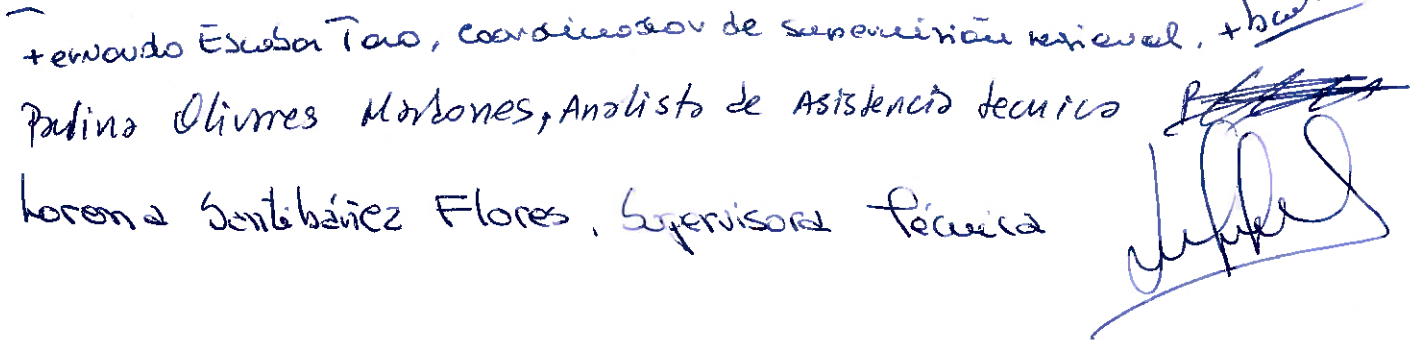 Fernando Escobar Toro, coordinador de supervisión regional.
Paulina Olivares Mardones, Analista de Asistencia tecnica
Lorena Santibáñez Flores, Supervisora Técnica